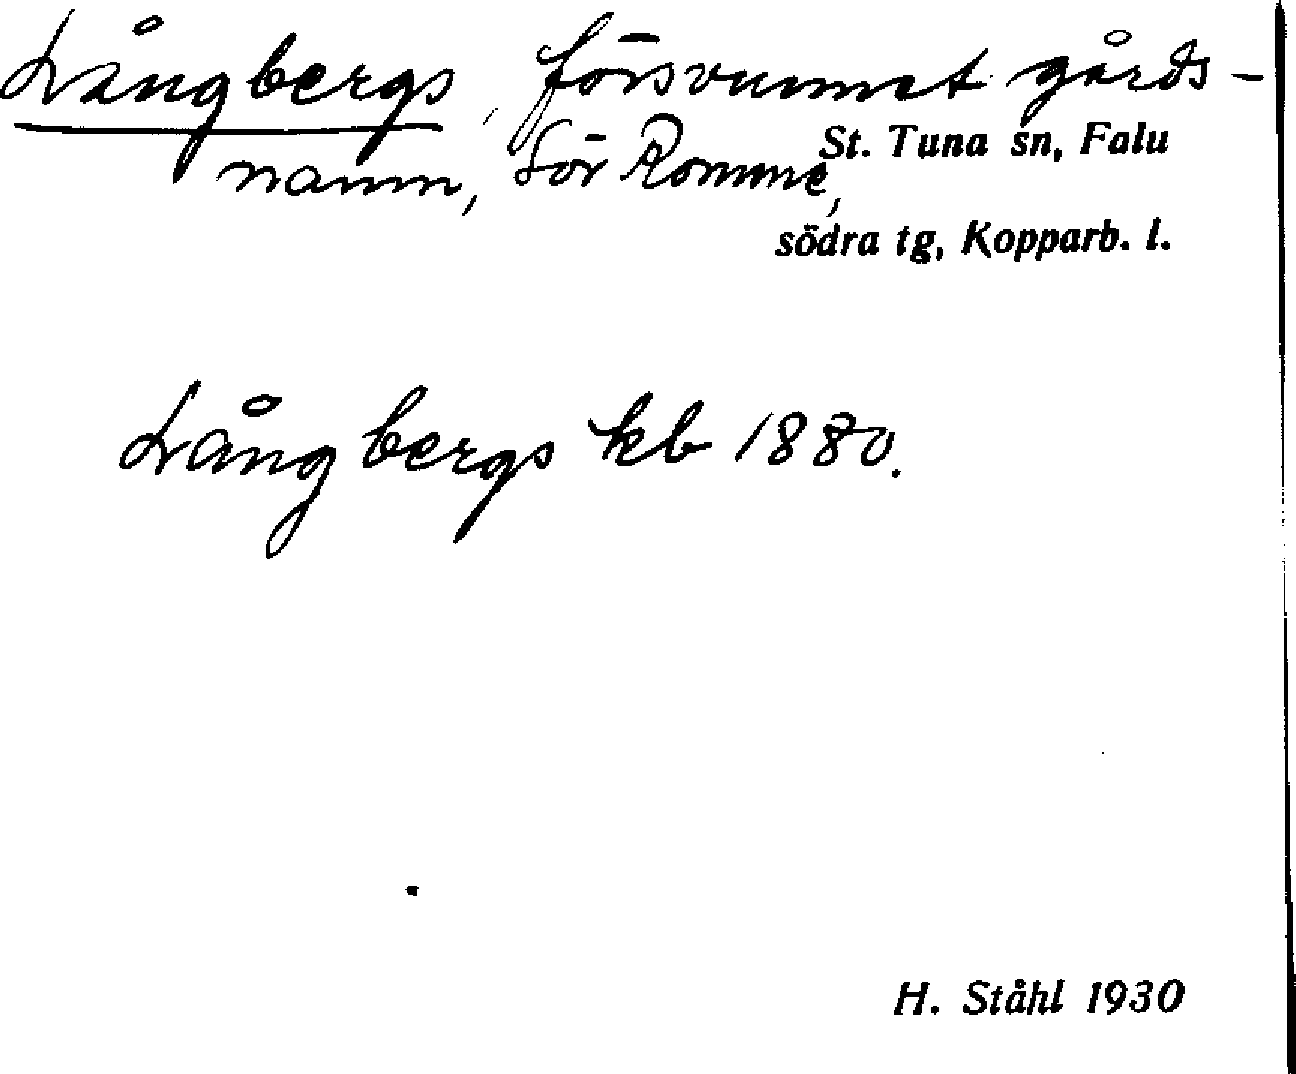 Långbergs, försvunnet gårds-
namn, Sör Romme,
St. Tuna sn, Falu
södra tg, Kopparb. l.
Långbergs kb 1880.
H. Ståhl 1930